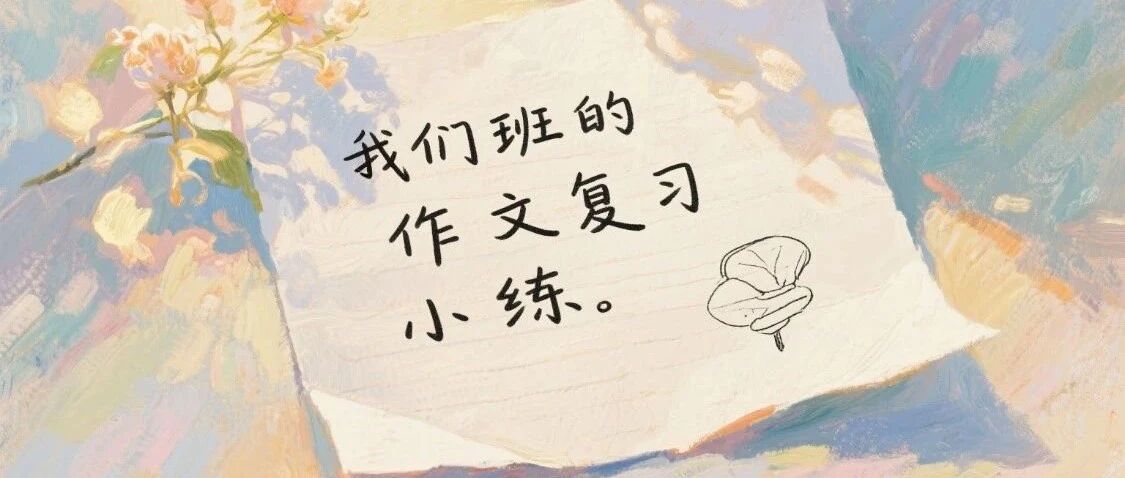 我们班的
作文复习
小练。